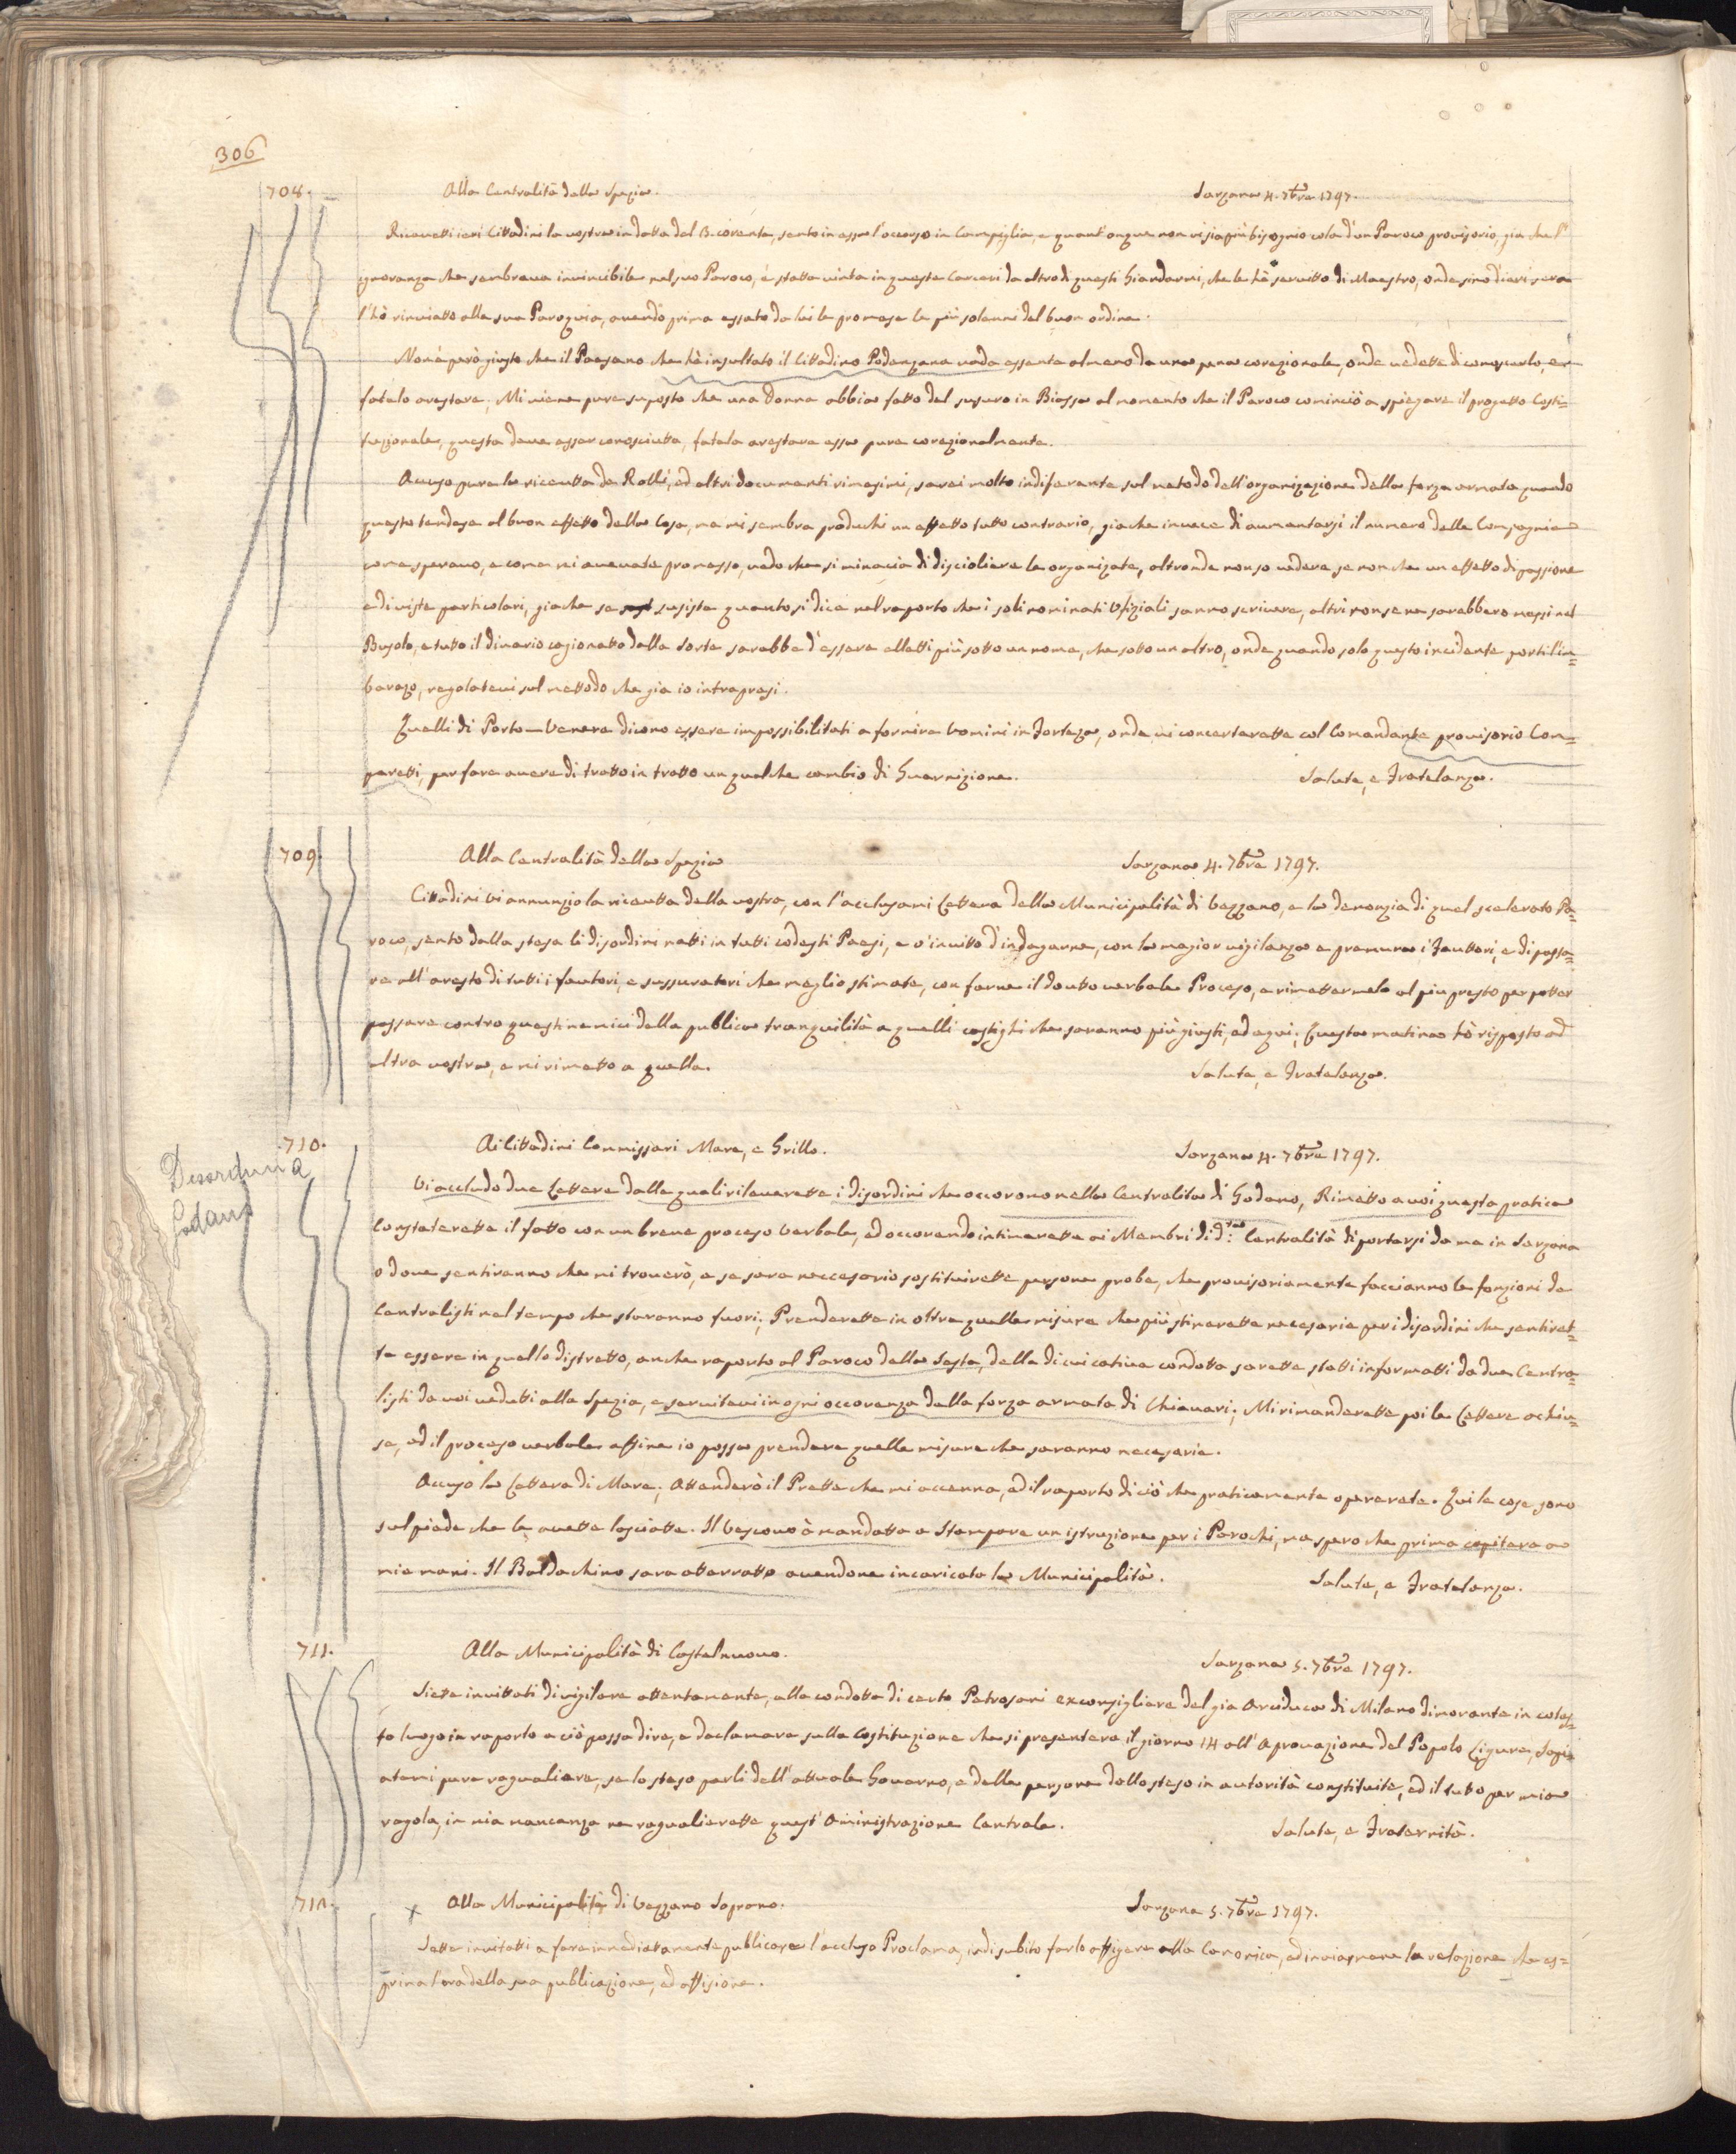 306
708. Alla Centralità della Spezia. Sarzana 4. 7bre 1797.
Ricevetti ieri Cittadini la vostra in datta del 3. corente, sento in essa l'occorso in Campiglia, e quant'onque non vi sia più bisognio cola d'un Paroco provisorio, gia che l'
gnoranza che sembrava invincibile nel suo Paroco, é statta vinta in queste Carceri da altro di questi Giandarmi, che le hà servitto di Maestro, onde sino di ieri sera
l'hò rinviatto alla sua Paroquia, avendo prima essato da lui le promese le più solenni del buon ordine.
Non é però giusto che il Paesano che hà insultato il Cittadino Podenzana vada essente almeno da una pena corezionale, onde vedette di conoscerlo, e
fatelo arestare; Mi viene pure suposto che una Donna abbia fatto del susuro in Biassa al momento che il Paroco cominciò a spiegare il progetto Costi=
tuzionale, questa deve esser conosciutta, fatela arestare essa pure corezionalmente.
Acuso pure la ricevutta de Rolli, ed altri documenti rimesimi, sarei molto indiferente sul metodo dell'organizazione della forza armata quando
questo tendese al buon effetto della Cosa, ma mi sembra produchi un effetto tutto contrario, gia che invece di aumentarsi il numero delle Compagnie
come speravo, e come mi avevate promesso, vedo che si minacia di disciogliere le organizate, altronde non so vedere se non che un effetto di passione
e di viste particolari, gia che se susiste quanto si dice nel raporto che i soli nominati Ufiziali sanno scrivere, altri non se ne sarebbero messi nel
Busolo, e tutto il divario cagionatto dalla Sorte sarebbe d'essere elletti più sotto un nome, che sotto un altro, onde quando solo questo incidente porti l'im=
barazo, regolatevi sul mettodo che gia io intrapresi.
Quelli di Porto-Venere dicono essere impossibilitati a fornire Uomini in Forteza, onde vi concertarette col Comandante provisorio Com=
paretti, per fare avere di tratto in tratto un qualche cambio di Guarnizione. Salute, e Fratelanza.
709. Alla Centralità della Spezia Sarzana 4. 7bre 1797.
Cittadini vi annunzio la ricevutta della vostra, con l'acclusami Lettera della Municipalità di Vezzano, e la denonzia di quel scelerato Pa=
roco, sento dalla stesa li disordini natti in tutti codesti Paesi, e v'invitto d'indagarne, con la magior vigilanza e premura i Fauttori, e di passa=
re all'aresto di tutti i fautori, e sussuratori che meglio stimate, con farne il douto verbale Proceso, e rimettermelo al piu presto per potter
passare contro questi nemici della publica tranquilità a quelli castighi che saranno più giusti, ed equi; Questa matina hò risposto ad
altra vostra, e mi rimetto a quella. Salute, e Fratelanza.
Disordini a
Godano
710. Ai Cittadini Commissari Mare, e Grillo. Sarzana 4. 7bre 1797.
Vi accludo due Lettere dalle quali rileverette i disordini che occorono nella Centralità di Godano, Rimetto a voi questa pratica
Constaterette il fatto con un breve proceso verbale, ed occorendo intimerette ai Membri di d:ta Centralità di portarsi da me in Sarzana
o dove sentiranno che mi troverò, e se sara neccesario sostituirette persone probe, che provisoriamente facciano le fonzioni de
Centralisti nel tempo che staranno fuori; Prenderette in oltre quelle misure che più stimerette necesarie per i disordini che sentiret=
te essere in quello distretto, anche raporto al Paroco della Sesta, della di cui cativa condotta sarette statti informatti da due Centra=
listi da voi veduti alla Spezia, e servitevi in ogni occorenza della forza armata di Chiavari; Mi rimanderette poi le Lettere achiu=
se, ed il proceso verbale affine io possa prendere quelle misure che saranno necesarie.
Acuso la Lettera di Mare; Attenderò il Prette che mi accenna, ed il raporto di ciò che praticamente operarete. Qui le cose sono
sul piede che le avette lasciatte. Il Vescovo à mandatto a Stampare un istruzione per i Parochi, ma spero che prima capitera a
mie mani. Il Baldachino sara atterratto avendone incaricato la Municipalità. Salute, e Fratelanza.
711. Alla Municipalità di Castelnuovo. Sarzana 5. 7bre 1797.
Siette invittati di vigilare attentamente, alla condotta di certo Petrosani exconsigliere del gia Arciduca di Milano dimorante in cotes=
to luogo in raporto a ciò possa dire, e declamare sulla Costituzione che si presentera il giorno 14 all'Aprovazione del Popolo Ligure, Sapi
atemi pure raqualiare, se lo steso parli dell'attuale Governo, e delle persone dello steso in autorità constituite, ed il tutto per mia
regola, in mia mancanza ne raqualierette quest'Aministrazione Centrale. Salute, e Fraternità.
712. x Alla Municipalità di Vezzano Soprano. Sarzana 5. 7bre 1797.
Sette invitatti a fare immediattamente publicare l'accluso Proclama, indi subito farlo affigere alla Canonica, ed inviarmene la relazione che es=
prima l'ora della sua publicazione, ed affisione.